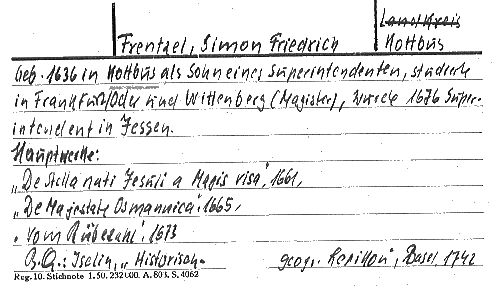 Landkreis
Frentzel, Simon Friedrich Kottbus
geb. 1636 in Kottbus als Sohn eines Superintendenten, studierte
in Frankfurt/Oder und Wittenberg (Magister), wurde 1676 Super-
intendent in Jessen.
Hauptwerke:
„De Stella nati Jesuli a Magis visa", 1661,
„De Majestate Osmannica", 1665,
„Vom Rübezahl", 1673
B.Q.: Iselin, „Historisch- geogr. Lexikon", Basel, 1742
Reg. 10. Stichnote 1. 50. 232000. A. 803. S. 4062